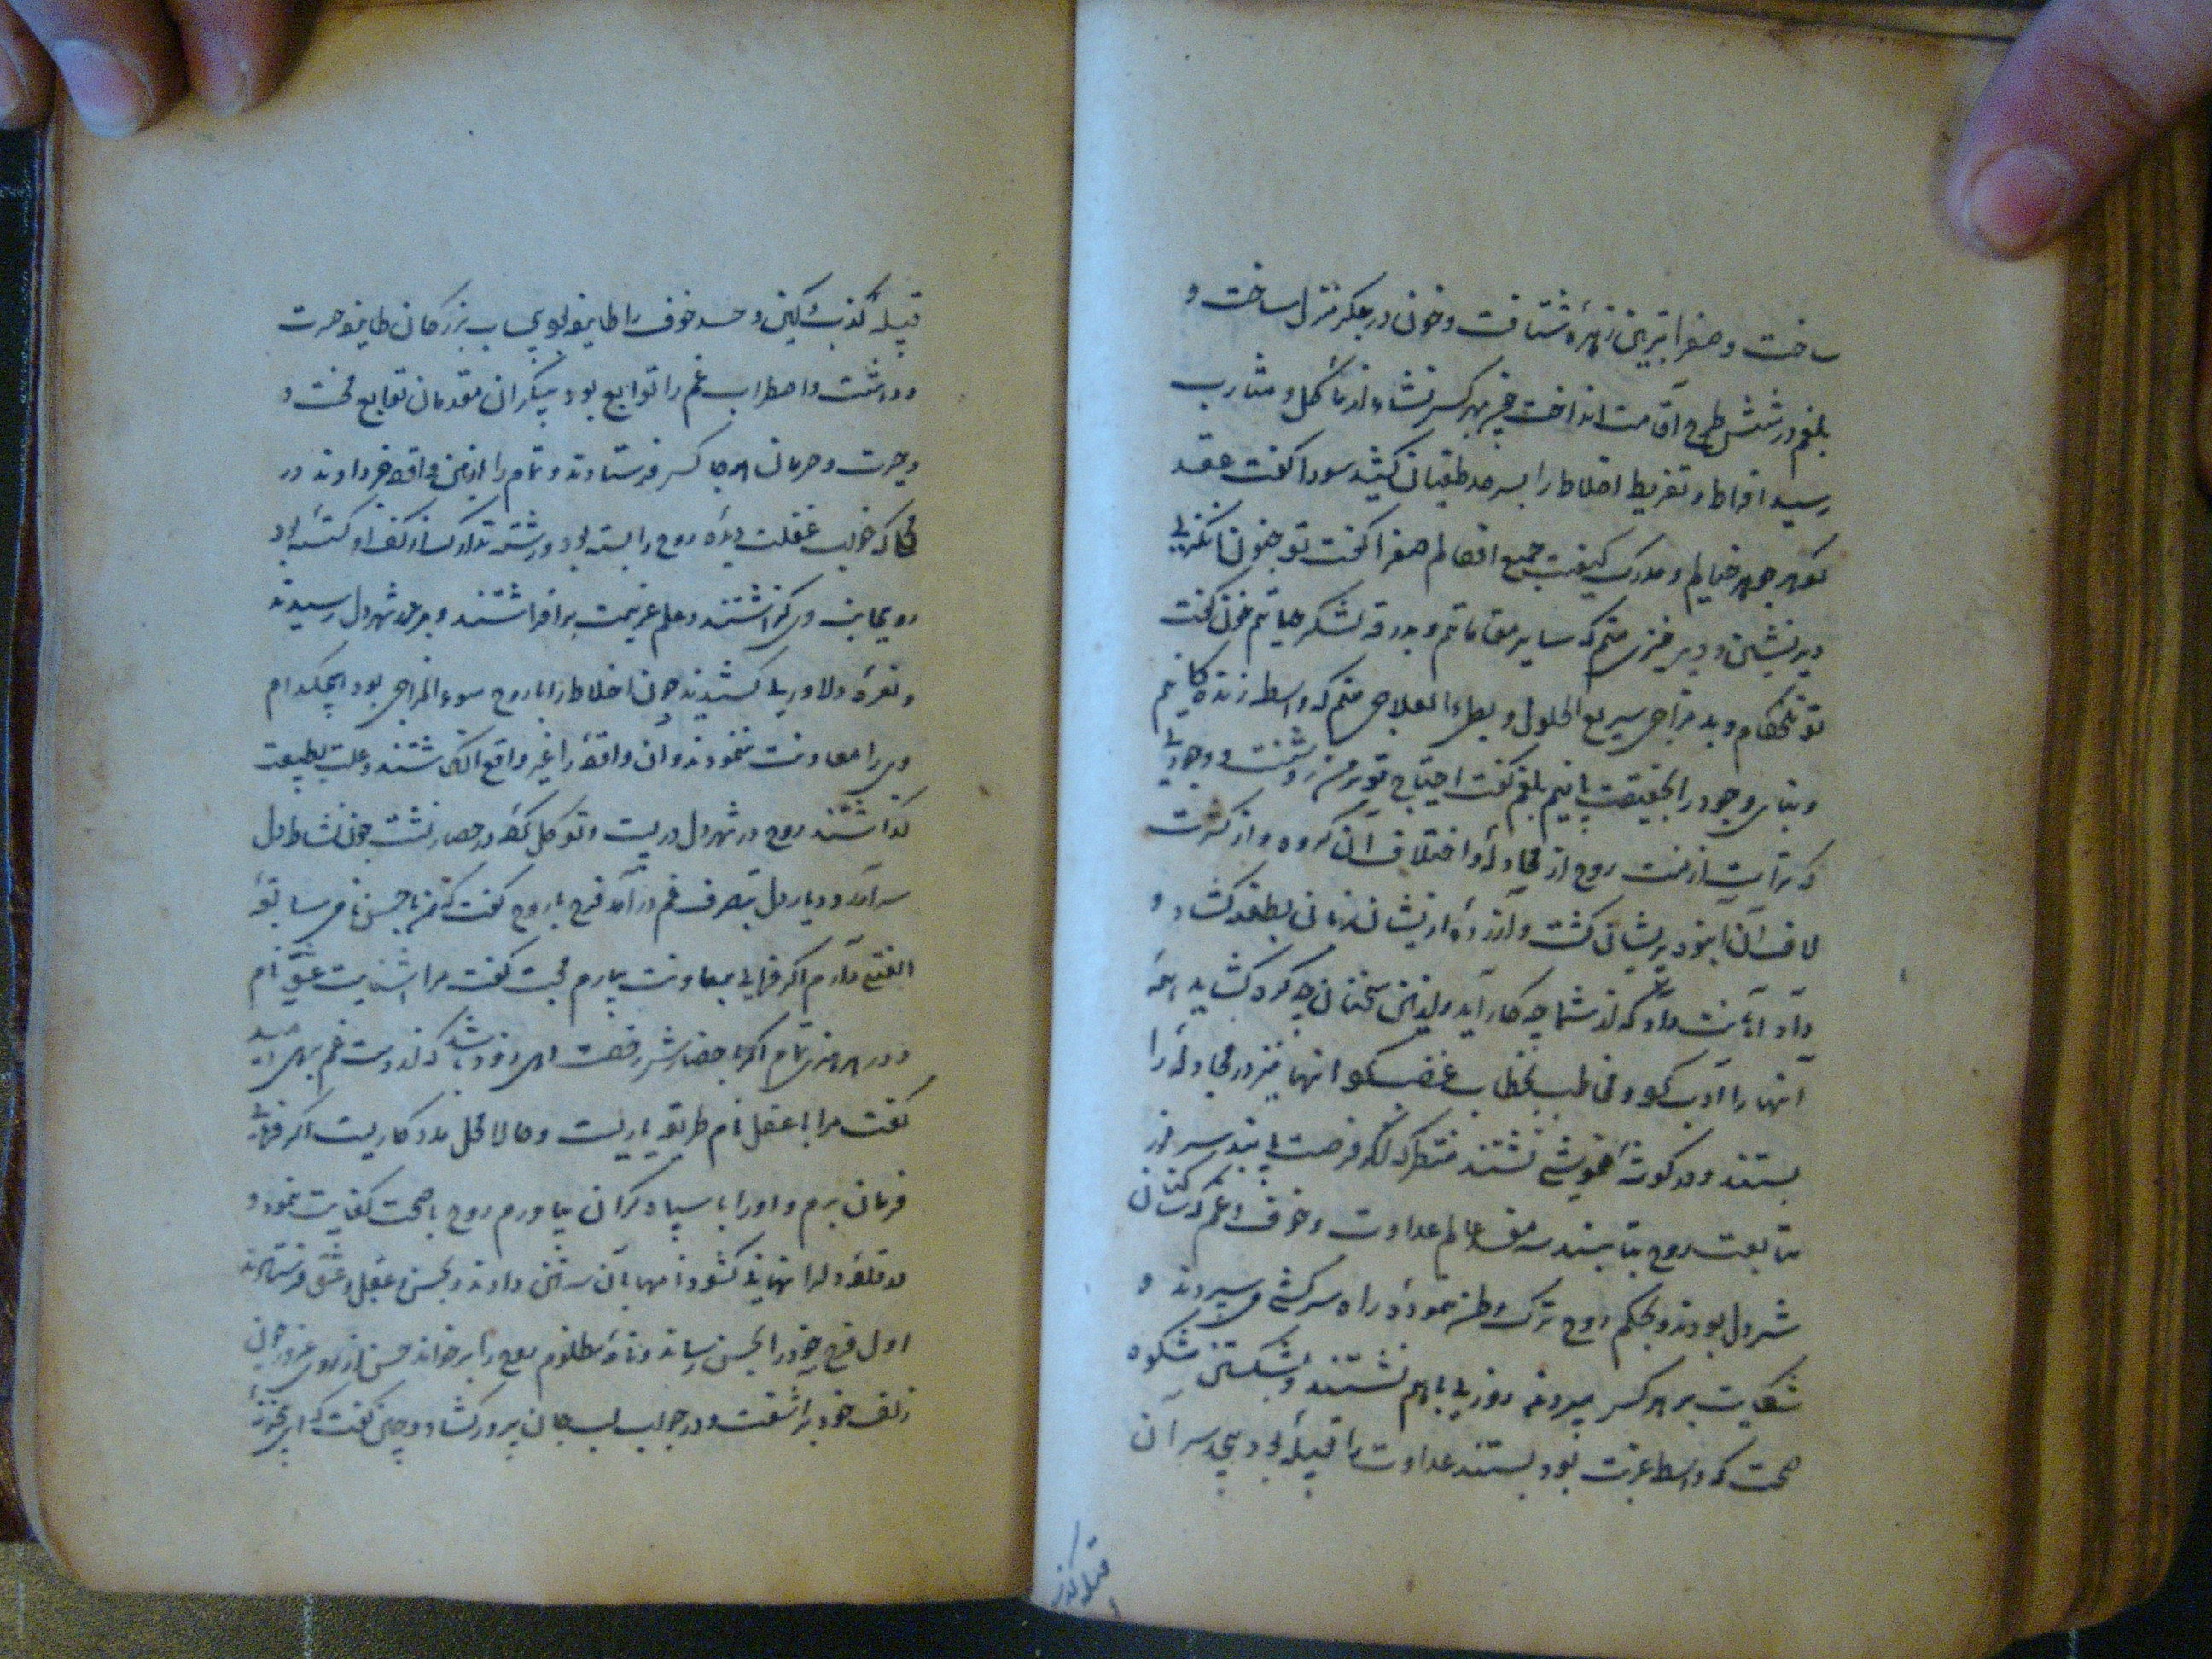 ساخت و صفرا بترین زهره شتافت و خون در جگر منزل ساخت و
بلغم در شش طرح اقامت انداخت چون بهر کس نشاء از مأکل و مشارب
رسید افراط و تفریط اخلاط را بسر حد طغیان کشید سودا گفت عقد
گوهر جوهر خیالم و مدرک کیفیت جمیع افعالم صفرا گفت تو جنون انگیزی
دیر نشین و دیر خیزی منم که سایر مقاماتم و بدرقه لشکر حیاتم خون گفت
تو تلخ کام و بد مزاجی سریع الحلول و بطی العلاجی منم که واسطه زنده کانیم
و بنای وجود را بحقیقت بانیم بلغم گفت احتیاج تو بر من روشنست و وجودی
که تراست از منست روح از مجادله و اختلاف آن گروه و از کثرت
لاف آن انبوه پریشان گشت و آزرده از ایشان زبان بطعنه گشاد و
داد اهانت داد که از شما چه کار آید و از این سخنان چه گره گشاید همه
آنها را ادب کرد و مخاطب بخطاب غضب کرد آنها نیز در مجادله را
بستند و در گوشه خموشی نشستند منتظر که اگر فرصت یابند سر از
متابعت روح بتابند سه مفسد عالم عداوت و خوف و غم که ساکنان
شهر دل بودند و بحکم روح ترک وطن نموده راه سرکشی می سپردند و
شکایت بر هر کس میبردند روزی با هم نشستند و بشکستن شکوه
صحت که واسطه عزت بود بستند عداوت را قبیله بود بیحد سران
قبیله کذب
قبیله کذب و کین و حسد خوف را طایفه بود بی حساب بزرگان طایفه حیرت
و دهشت و اضطراب غم را توابع بود بیکران مقدمان توابع محنت و
و حسرت و حرمان هر جا کس فرستادند و تمام را از این واقعه خبر دادند در
محلی که خواب غفلت دیده روح را بسته بود و رشته تدارک از کف او گسسته بود
روی بجانب وی گذاشتند و علم عزیمت برافراشتند و بر در شهر دل رسیدند
و نعره دلاوری کشیدند چون اخلاط را با روح سوء المزاجی بود هیچکدام
وی را معاونت ننمودند و آن واقعه را غیر واقع انگاشتند و علت بطبیعت
گذاشتند روح در شهر دل در بست و توکل کرده در حصار نشست چون نشاط دل
سر آمد و دیار دل بتصرف غم در آمد فرح با روح گفت که من با حسن نامی سابقه
الفتی دارم اگر فرمایی بمعاونت بیارم محبت گفت مرا آشناییست عشق نام
و در هر هنری تمام اگر باحضارش رخصت دهی زود باشد که از دست غم برهی امید
گفت مرا با عقل نام طریقه یاریست و حالا محل مددکاریست اگر فرمایی
فرمان برم و او را با سپاه گران بیاورم روح با صحت کفایت نمود و
در قلعه دل را نهانی گشود نامها بآن سه تن دادند و بحسن و عقل و عشق فرستادند
اول فرح خود را بحسن رساند و نامه مظلوم روح را بر خواند حسن از روی غرور چون
زلف خود بر آشفت و در جواب لب جان پرور گشاد و چنین گفت که ای